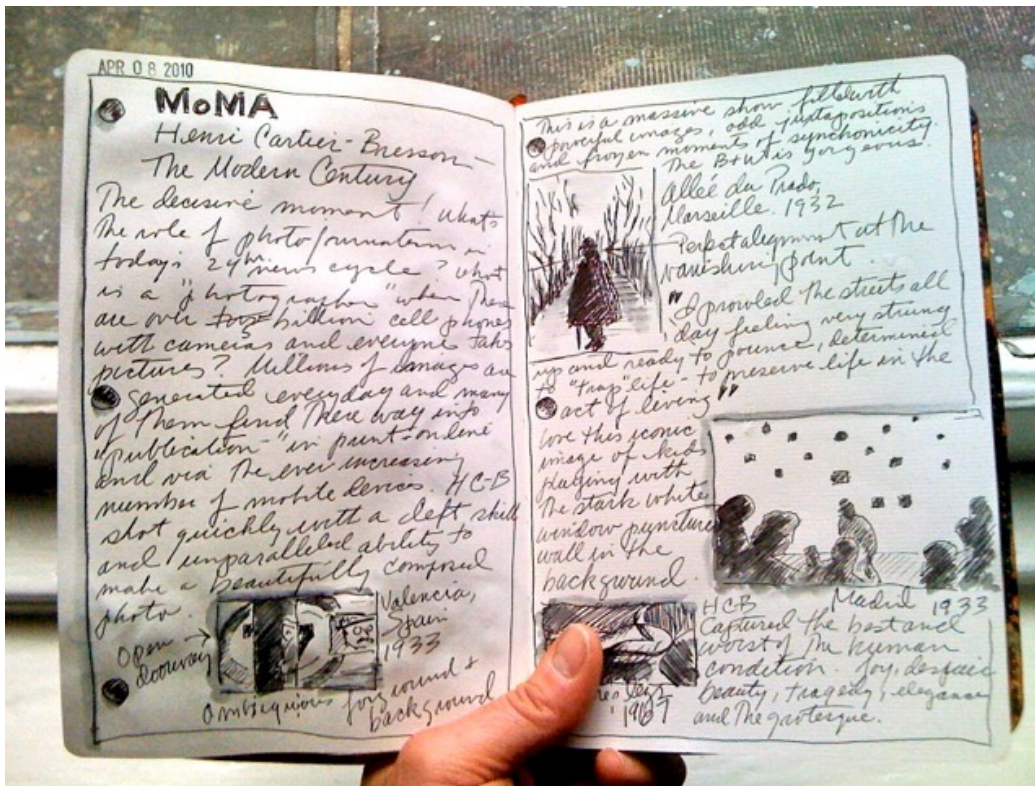 APR 08 2010
MoMA
Henri Cartier-Bresson –
The Modern Century
The decisive moment! What's
the role of photojournalism in
today's 24hr news cycle? What
is a "photographer" when There
are over billion cell phones
with cameras and everyone takes
pictures? Millions of images are
generated everyday and many
of Them find There way into
"publication" in print - online
and via The ever increasing
number of mobile devices. HC-B
shot quickly with a deft skill
and unparalleled ability to
make a beautifully composed
photo.
Open
doorway
Valencia,
Spain
1933
Ambiguous foreground &
background
This is a massive show filled with
powerful images, odd juxtapositions
and frozen moments of synchonicity.
The B+W is gorgeous.
Allée du Prado,
Marseille. 1932
Perfect alignment at the
vanishing point.
"I prowled the streets all
day feeling very strung
up and ready to pounce, determined
to "trap" life - to preserve life in the
act of living"
love this iconic
image of kids
playing with
the stark white
window puncture
wall in the
background.
Madrid 1933
HCB
Captured the best and
worst of The human
condition. Joy, despair
beauty, tragedy, elegance
and The grotesque.